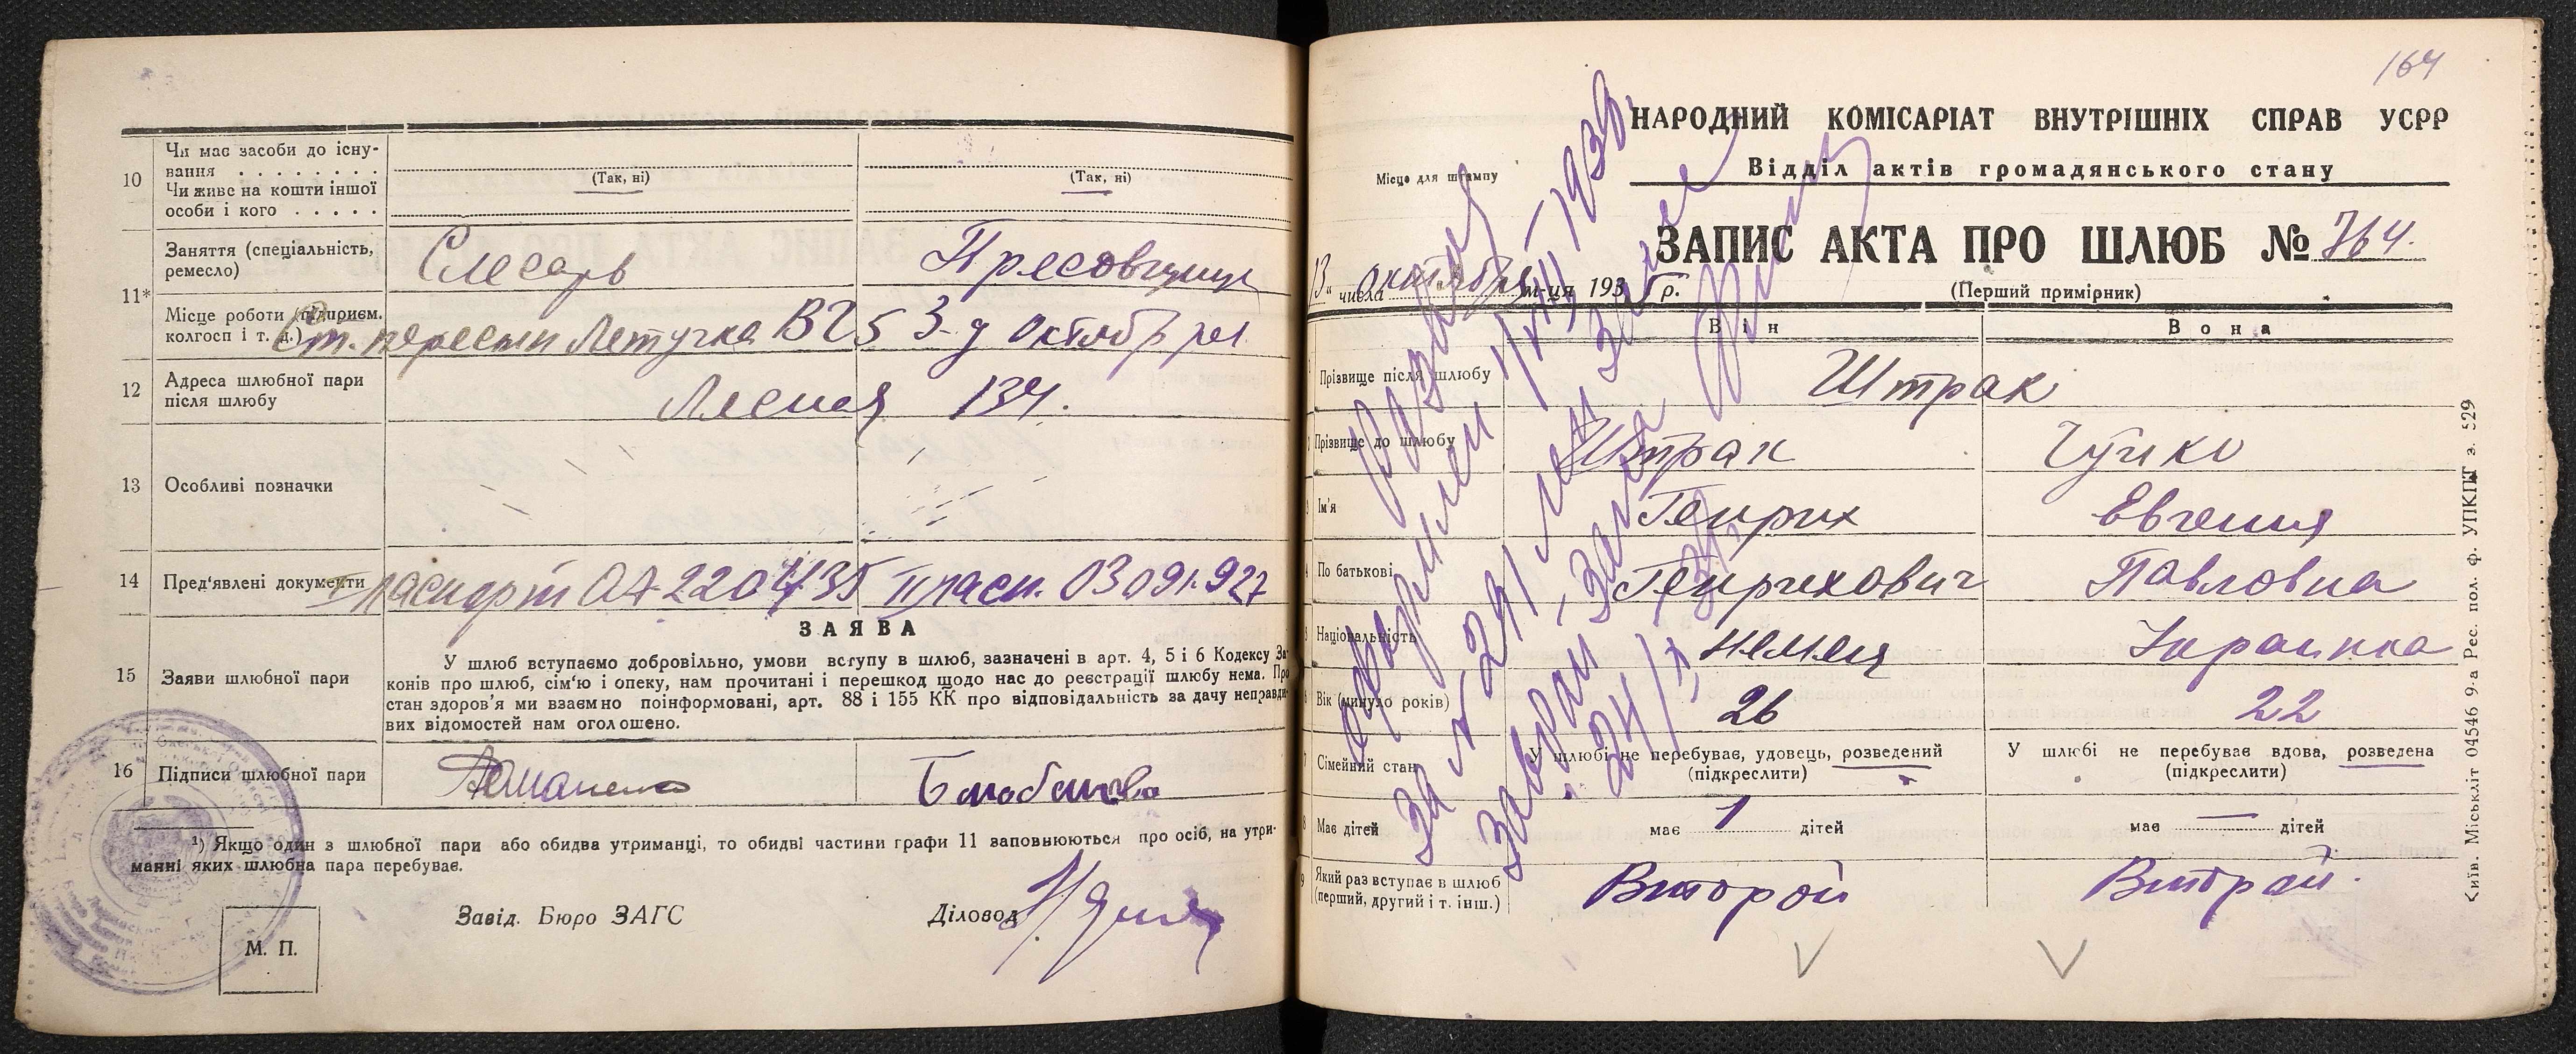 10
Чи має засоби до існу-
вання . . . . . . . .
Чи живе на кошти іншої
особи і кого . . . . .
(Так, ні)
(Так, ні)
11*
Заняття (спеціальність,
ремесло)
Слесарь
Пресовщица
Місце роботи (підприєм.
колгосп і т. д.)
Ст. пересыпь Летучка ВЧ5
З-д Октябр рев.
12
Адреса шлюбної пари
після шлюбу
Лесная 134.
13
Особливі позначки
14
Пред'явлені документи
паспорт
927
ЗАЯВА
15
Заяви шлюбної пари
У шлюб вступаємо добровільно, умови вступу в шлюб, зазначені в арт. 4, 5 і 6 Кодексу За-
конів про шлюб, сім'ю і опеку, нам прочитані і перешкод щодо нас до реєстрації шлюбу нема. Про
стан здоров'я ми взаємно поінформовані, арт. 88 і 155 КК про відповідальність за дачу неправди-
вих відомостей нам оголошено.
16
Підписи шлюбної пари
¹) Якщо один з шлюбної пари або обидва утриманці, то обидві частини графи 11 заповнюються про осіб, на утри-
манні яких шлюбна пара перебуває.
Завід. Бюро ЗАГС
Діловод
М. П.
164
НАРОДНИЙ КОМІСАРІАТ ВНУТРІШНІХ СПРАВ УСРР
Відділ актів громадянського стану
Місце для штампу
ЗАПИС АКТА ПРО ШЛЮБ № 764.
(Перший примірник)
13" числа октября м-ця 193 р.
Він
Вона
Прізвище після шлюбу
Штрак
Прізвище до шлюбу
Штрак
Ім'я
Генрих
Евгения
По батькові
Генрихович
Павловна
Національність
немец
Украинка
Вік (минуло років)
26
22
Сімейний стан
У шлюбі не перебуває, удовець, розведений
(підкреслити)
У шлюбі не перебуває вдова, розведена
(підкреслити)
Має дітей
має 1 дітей
має — дітей
9
Який раз вступає в шлюб
(перший, другий і т. інш.)
Второй
Второй.
Развод
оформлен 1/VIII 1939
за № 291
Київ. Міськліт 04546 9-а Рес. пол. ф. УПКПТ з. 529